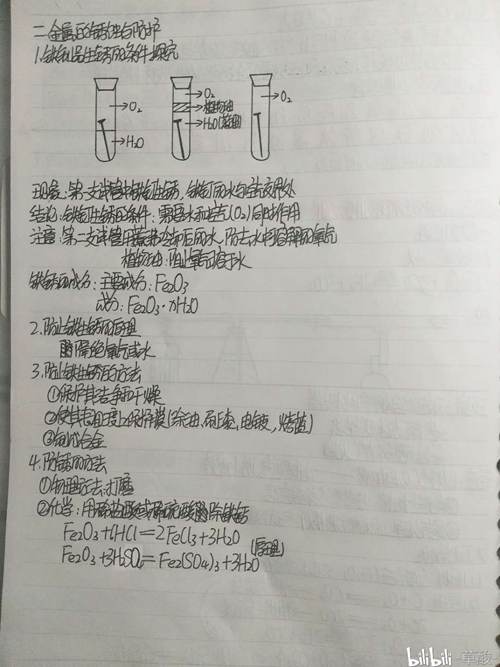 二.金属的锈蚀与防护
1.铁制品生锈的条件探究
O₂
H₂O
O₂
植物油
H₂O(蒸馏)
O₂
现象:第一支试管中铁钉生锈,铁钉在水和空气交界处
结论:铁钉生锈的条件:需要水和空气(O₂)同时作用
注意:第二支试管用蒸沸冷却后的水,防止水中溶解的氧气
植物油:阻止氧气溶于水
铁锈的成分:主要成分:Fe₂O₃
成分:Fe₂O₃·nH₂O
2.防止铁生锈的原理
隔绝氧气或水
3.防止铁生锈的方法
①保持其洁净而干燥
②使其表面覆上保护膜(涂油,刷漆,电镀,烤蓝)
③制成合金
4.除锈的方法
①物理方法:打磨
②化学:用稀盐酸或稀硫酸除铁锈
Fe₂O₃+6HCl=2FeCl₃+3H₂O
Fe₂O₃+3H₂SO₄=Fe₂(SO₄)₃+3H₂O (原理)
bilibili-草酸